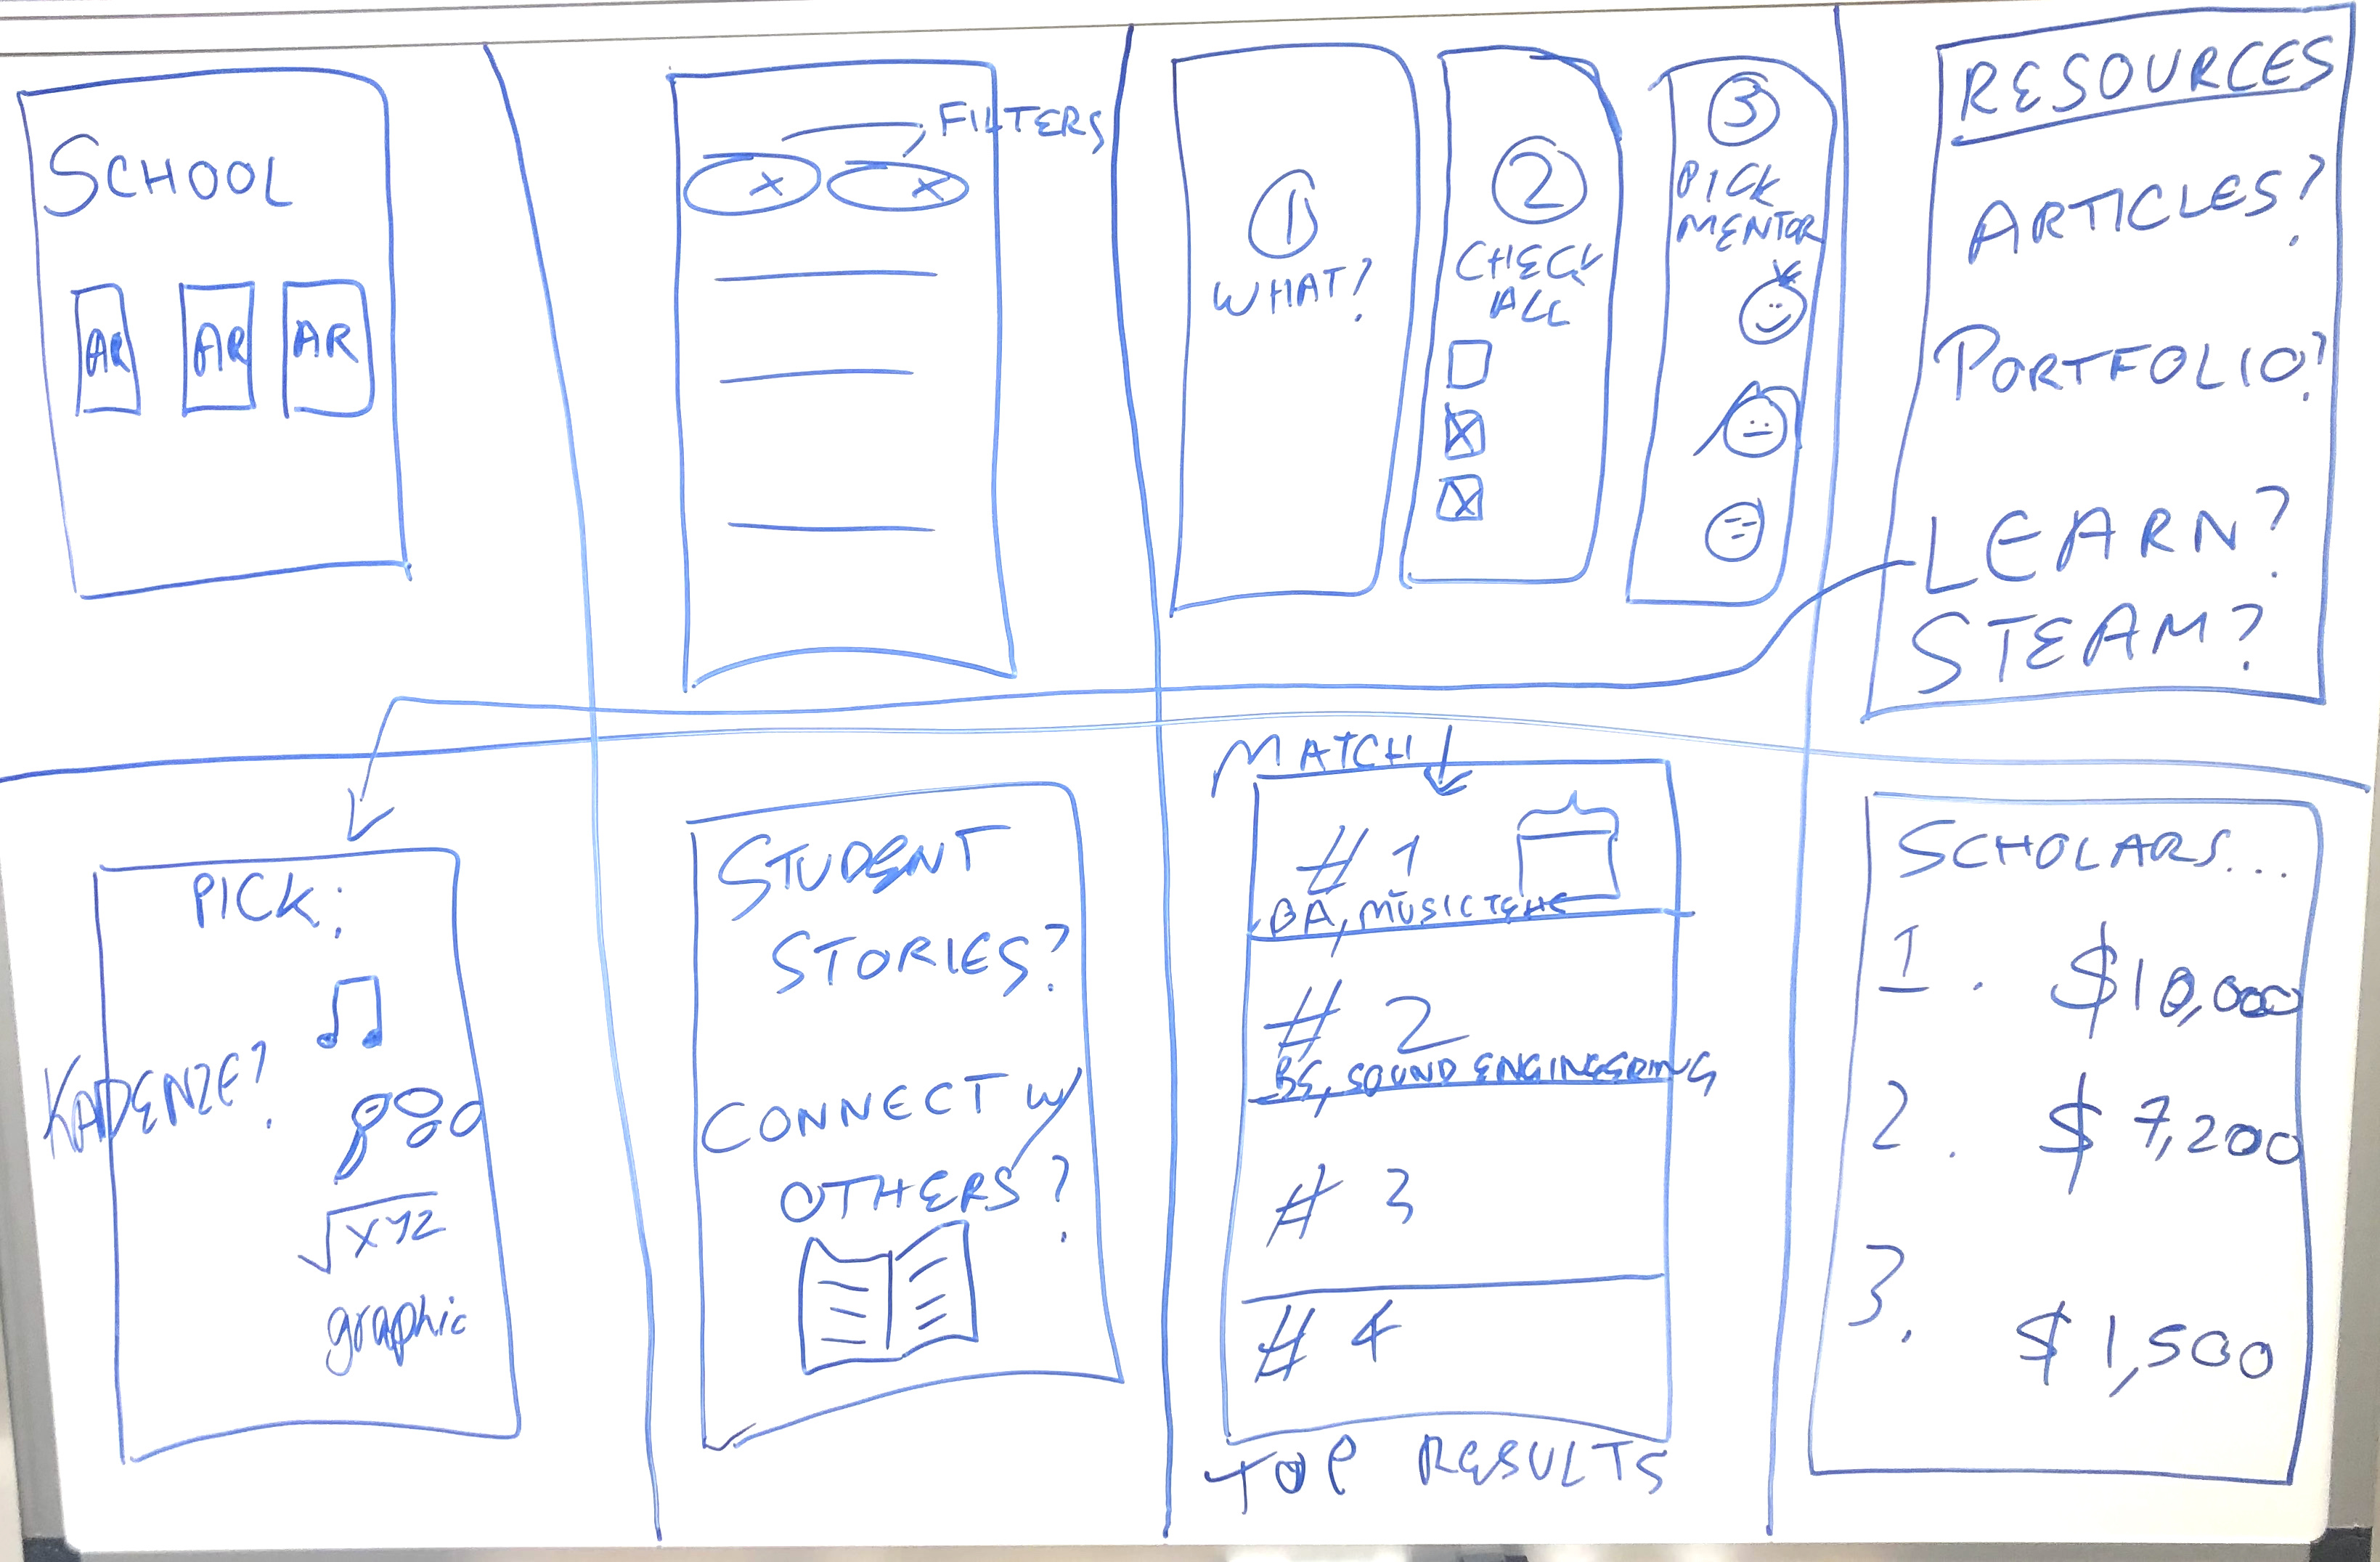 SCHOOL
AR AR AR
FILTERS
x x
1
WHAT?
2
CHECK
ALL
3
PICK
MENTOR
RESOURCES
ARTICLES?
PORTFOLIO?
LEARN?
STEAM?
PICK:
KADENZE?
√XYZ
graphic
STUDENT
STORIES?
CONNECT W/
OTHERS?
MATCH
# 1
BA, MUSIC
# 2
SOUND ENGINEERING
# 3
# 4
TOP RESULTS
SCHOLARS...
1. $10,000
2. $7,200
3. $1,500